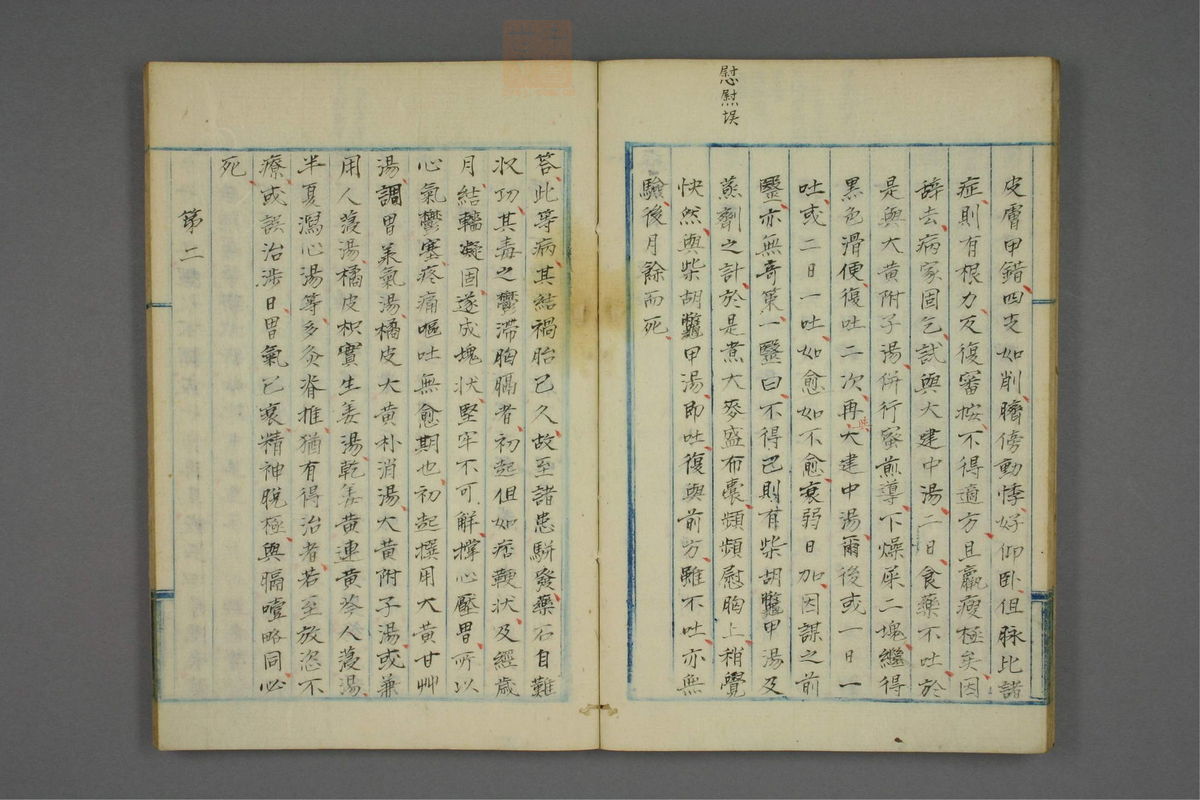 慰慰誤
皮膚甲錯四支如削臍傍動悸好仰卧但脉比諸
症則有根力反復審按不得適方且羸瘦極矣因
辞去病家固乞試與大建中湯二日食藥不吐於
是與大黄附子湯併行蜜煎導下燥屎二塊繼得
黒色滑便復吐二次再與大建中湯爾後或一日一
吐或二日一吐如愈如不愈衰弱日加因謀之前
醫亦無奇策一醫曰不得已則有柴胡鼈甲湯及
蒸劑之計於是煮大麥盛布嚢頻頻慰胸上稍覺
快然與柴胡鼈甲湯即吐復與前方雖不吐亦無
驗後月餘而死
答此等病其結禍胎已久故至諸患駢發藥石自難
收功其毒之鬱滞胸膈者初起但如痞鞕状及經歳
月結轖凝固遂成塊状堅牢不可解撑心壓胃所以
心氣鬱塞疼痛嘔吐無愈期也初起撰用大黄甘艸
湯調胃承氣湯橘皮大黄朴消湯大黄附子湯或兼
用人蓡湯橘皮枳實生姜湯乾姜黄連黄芩人蓡湯
半夏瀉心湯等多灸脊椎猶有得治者若至放恣不
療或誤治渉日胃氣已衰精神脱極與膈噎略同必
死
第二